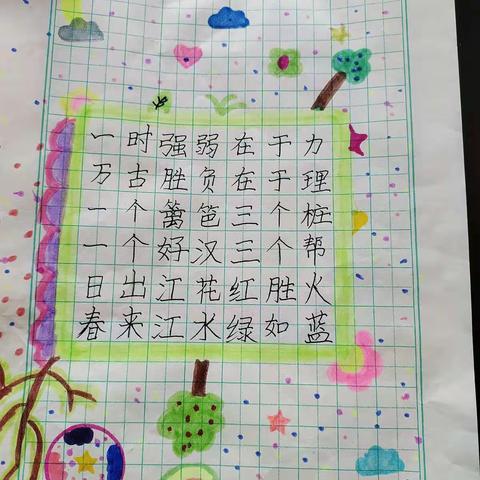 一时强弱在于力
万古胜负在于理
一个篱笆三个桩
一个好汉三个帮
日出江花红胜火
春来江水绿如蓝